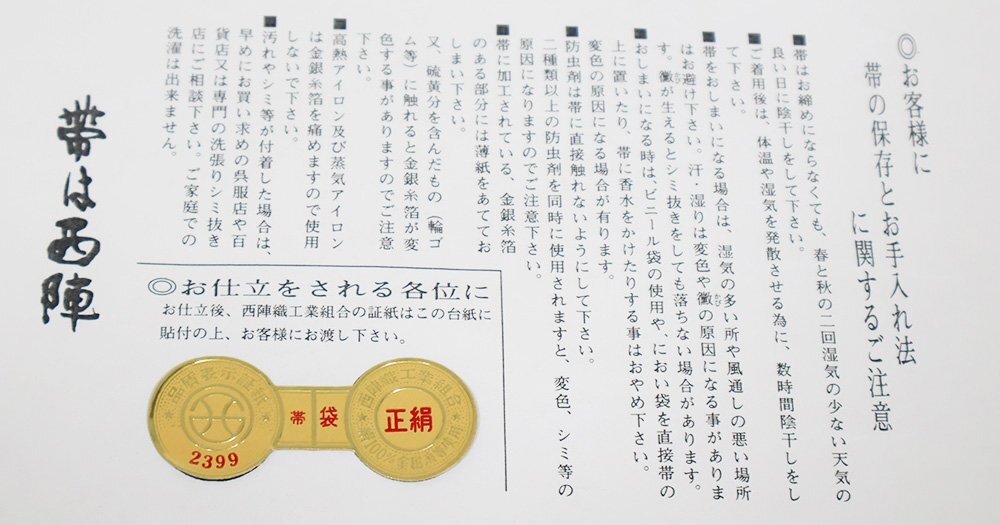 ◎お客様に
帯の保存とお手入れ法
に関するご注意
■帯はお締めにならなくても、春と秋の二回湿気の少ない天気の
良い日に陰干しをして下さい。
■ご着用後は、体温や湿気を発散させる為に、数時間陰干しをし
て下さい。
■帯をおしまいになる場合は、湿気の多い所や風通しの悪い場所
はお避け下さい。汗・湿りは変色や黴の原因になる事がありま
す。黴が生えるとシミ抜きをしても落ちない場合があります。
■おしまいになる時は、ビニール袋の使用や、におい袋を直接帯の
上に置いたり、帯に香水をかけたりする事はおやめ下さい。
変色の原因になる場合が有ります。
■防虫剤は帯に直接触れないようにして下さい。
二種類以上の防虫剤を同時に使用されますと、変色、シミ等の
原因になりますのでご注意下さい。
■帯に加工されている、金銀糸箔
のある部分には薄紙をあててお
しまい下さい。
又、硫黄分を含んだもの（輪ゴ
ム等）に触れると金銀糸箔が変
色する事がありますのでご注意
下さい。
■高熱アイロン及び蒸気アイロン
は金銀糸箔を痛めますので使用
しないで下さい。
■汚れやシミ等が付着した場合は、
早めにお買い求めの呉服店や百
貨店又は専門の洗張りシミ抜き
店にご相談下さい。ご家庭での
洗濯は出来ません。
帯は西陣
◎お仕立をされる各位に
お仕立後、西陣織工業組合の証紙はこの台紙に
貼付の上、お客様にお渡し下さい。
品質表示証紙
2399
帯
袋
西陣織工業組合
正絹